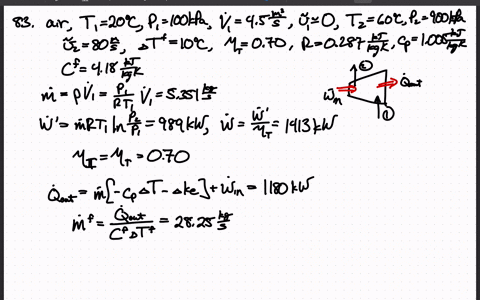 83. air, T₁=20°C, P₁=100kPa, V̇₁=4.5 m³/s, ṽ₁≃0, T₂=60°C, P₂=900kPa
ṽ₂=80 m/s, ΔTᶠ=10°C, η_T=0.70, R=0.287 kJ/kgK, Cp=1.005 kJ/kgK
Cᶠ=4.18 kJ/kgK
ṁ=ρV̇₁= P₁/RT₁ V̇₁=5.351 kg/s
Ẇ'=ṁRT₁ ln P₂/P₁=989kW, Ẇ=Ẇ'/η_T=1413kW
η_II=η_T=0.70
Q̇out=ṁ[-cpΔT-Δke]+Ẇin=1180kW
ṁᶠ= Q̇out/CᶠΔTᶠ=28.25 kg/s
②
Ẇin
Q̇out
①